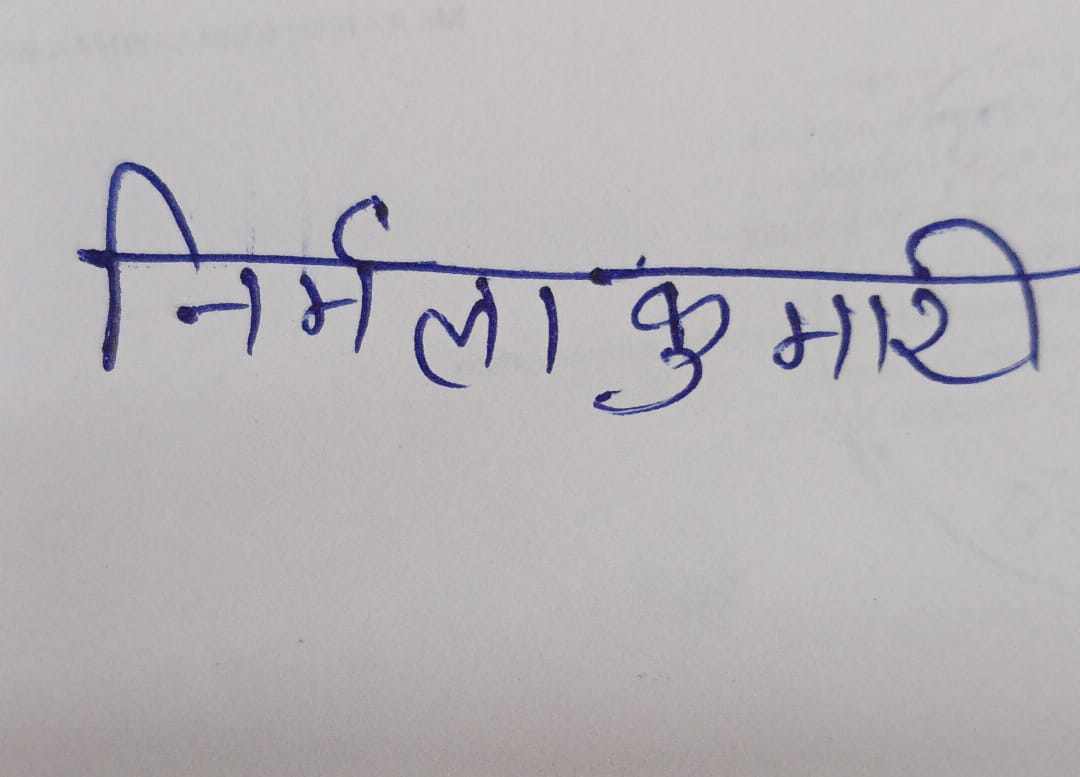 निर्मला कुमारी